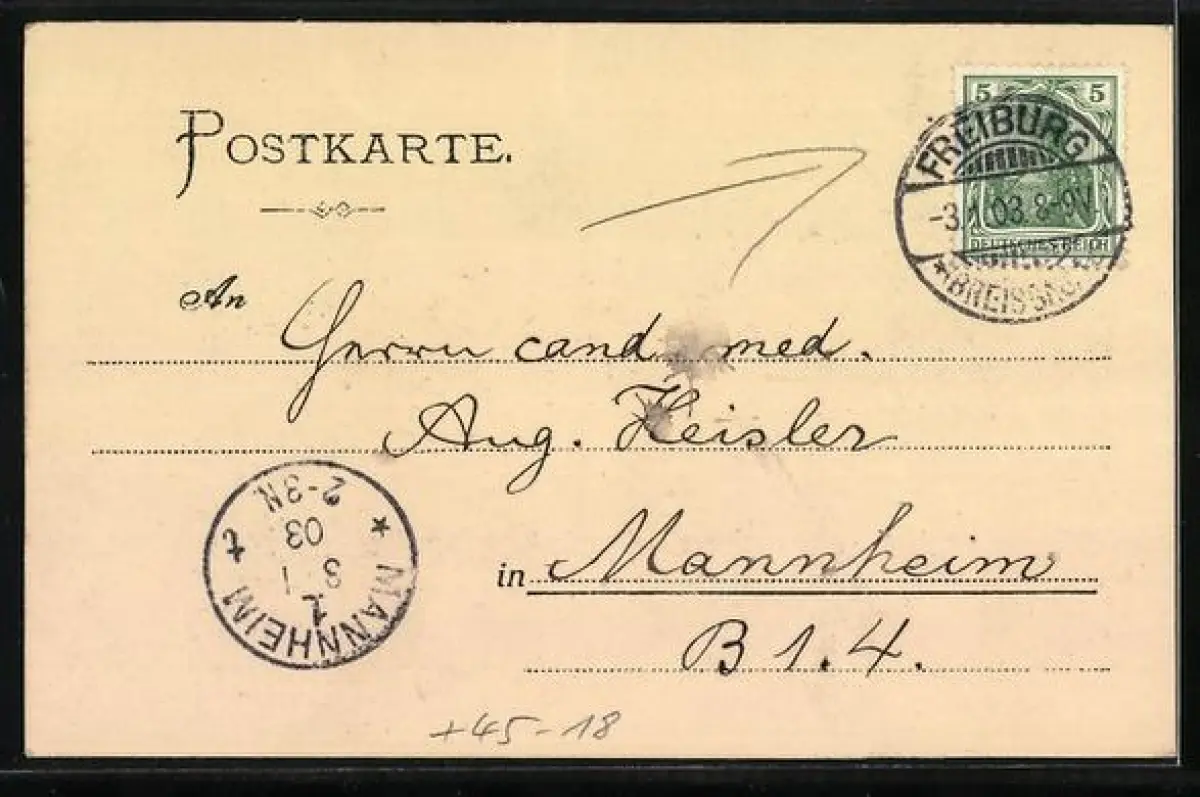 POSTKARTE.
5 5
FREIBURG
-3.1.03.8-9V
DEUTSCHES REICH
* (BREISGAU
An
Herrn cand. med.
Aug. Heisler
in Mannheim
B 1. 4.
* MANNHEIM
3 1
03
2-3N.
+45-18